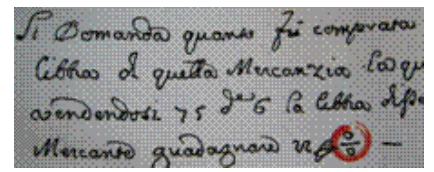 Si Domanda quanto fù comprata
libbra di quella Mercanzia la qu
vendendosi 75 de 6 la libbra
Mercante guadagnare